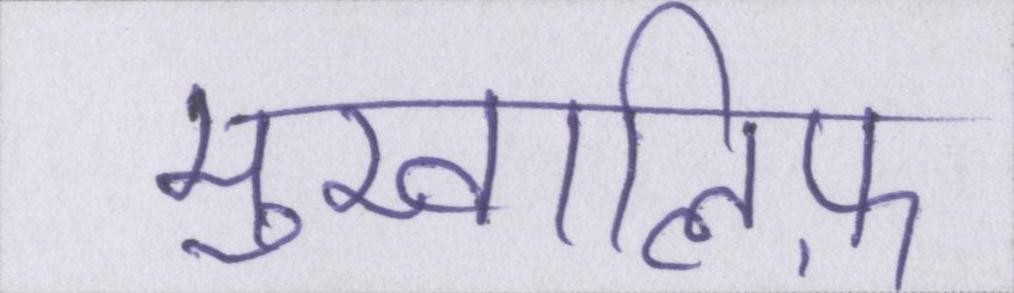 मुखालिफ़